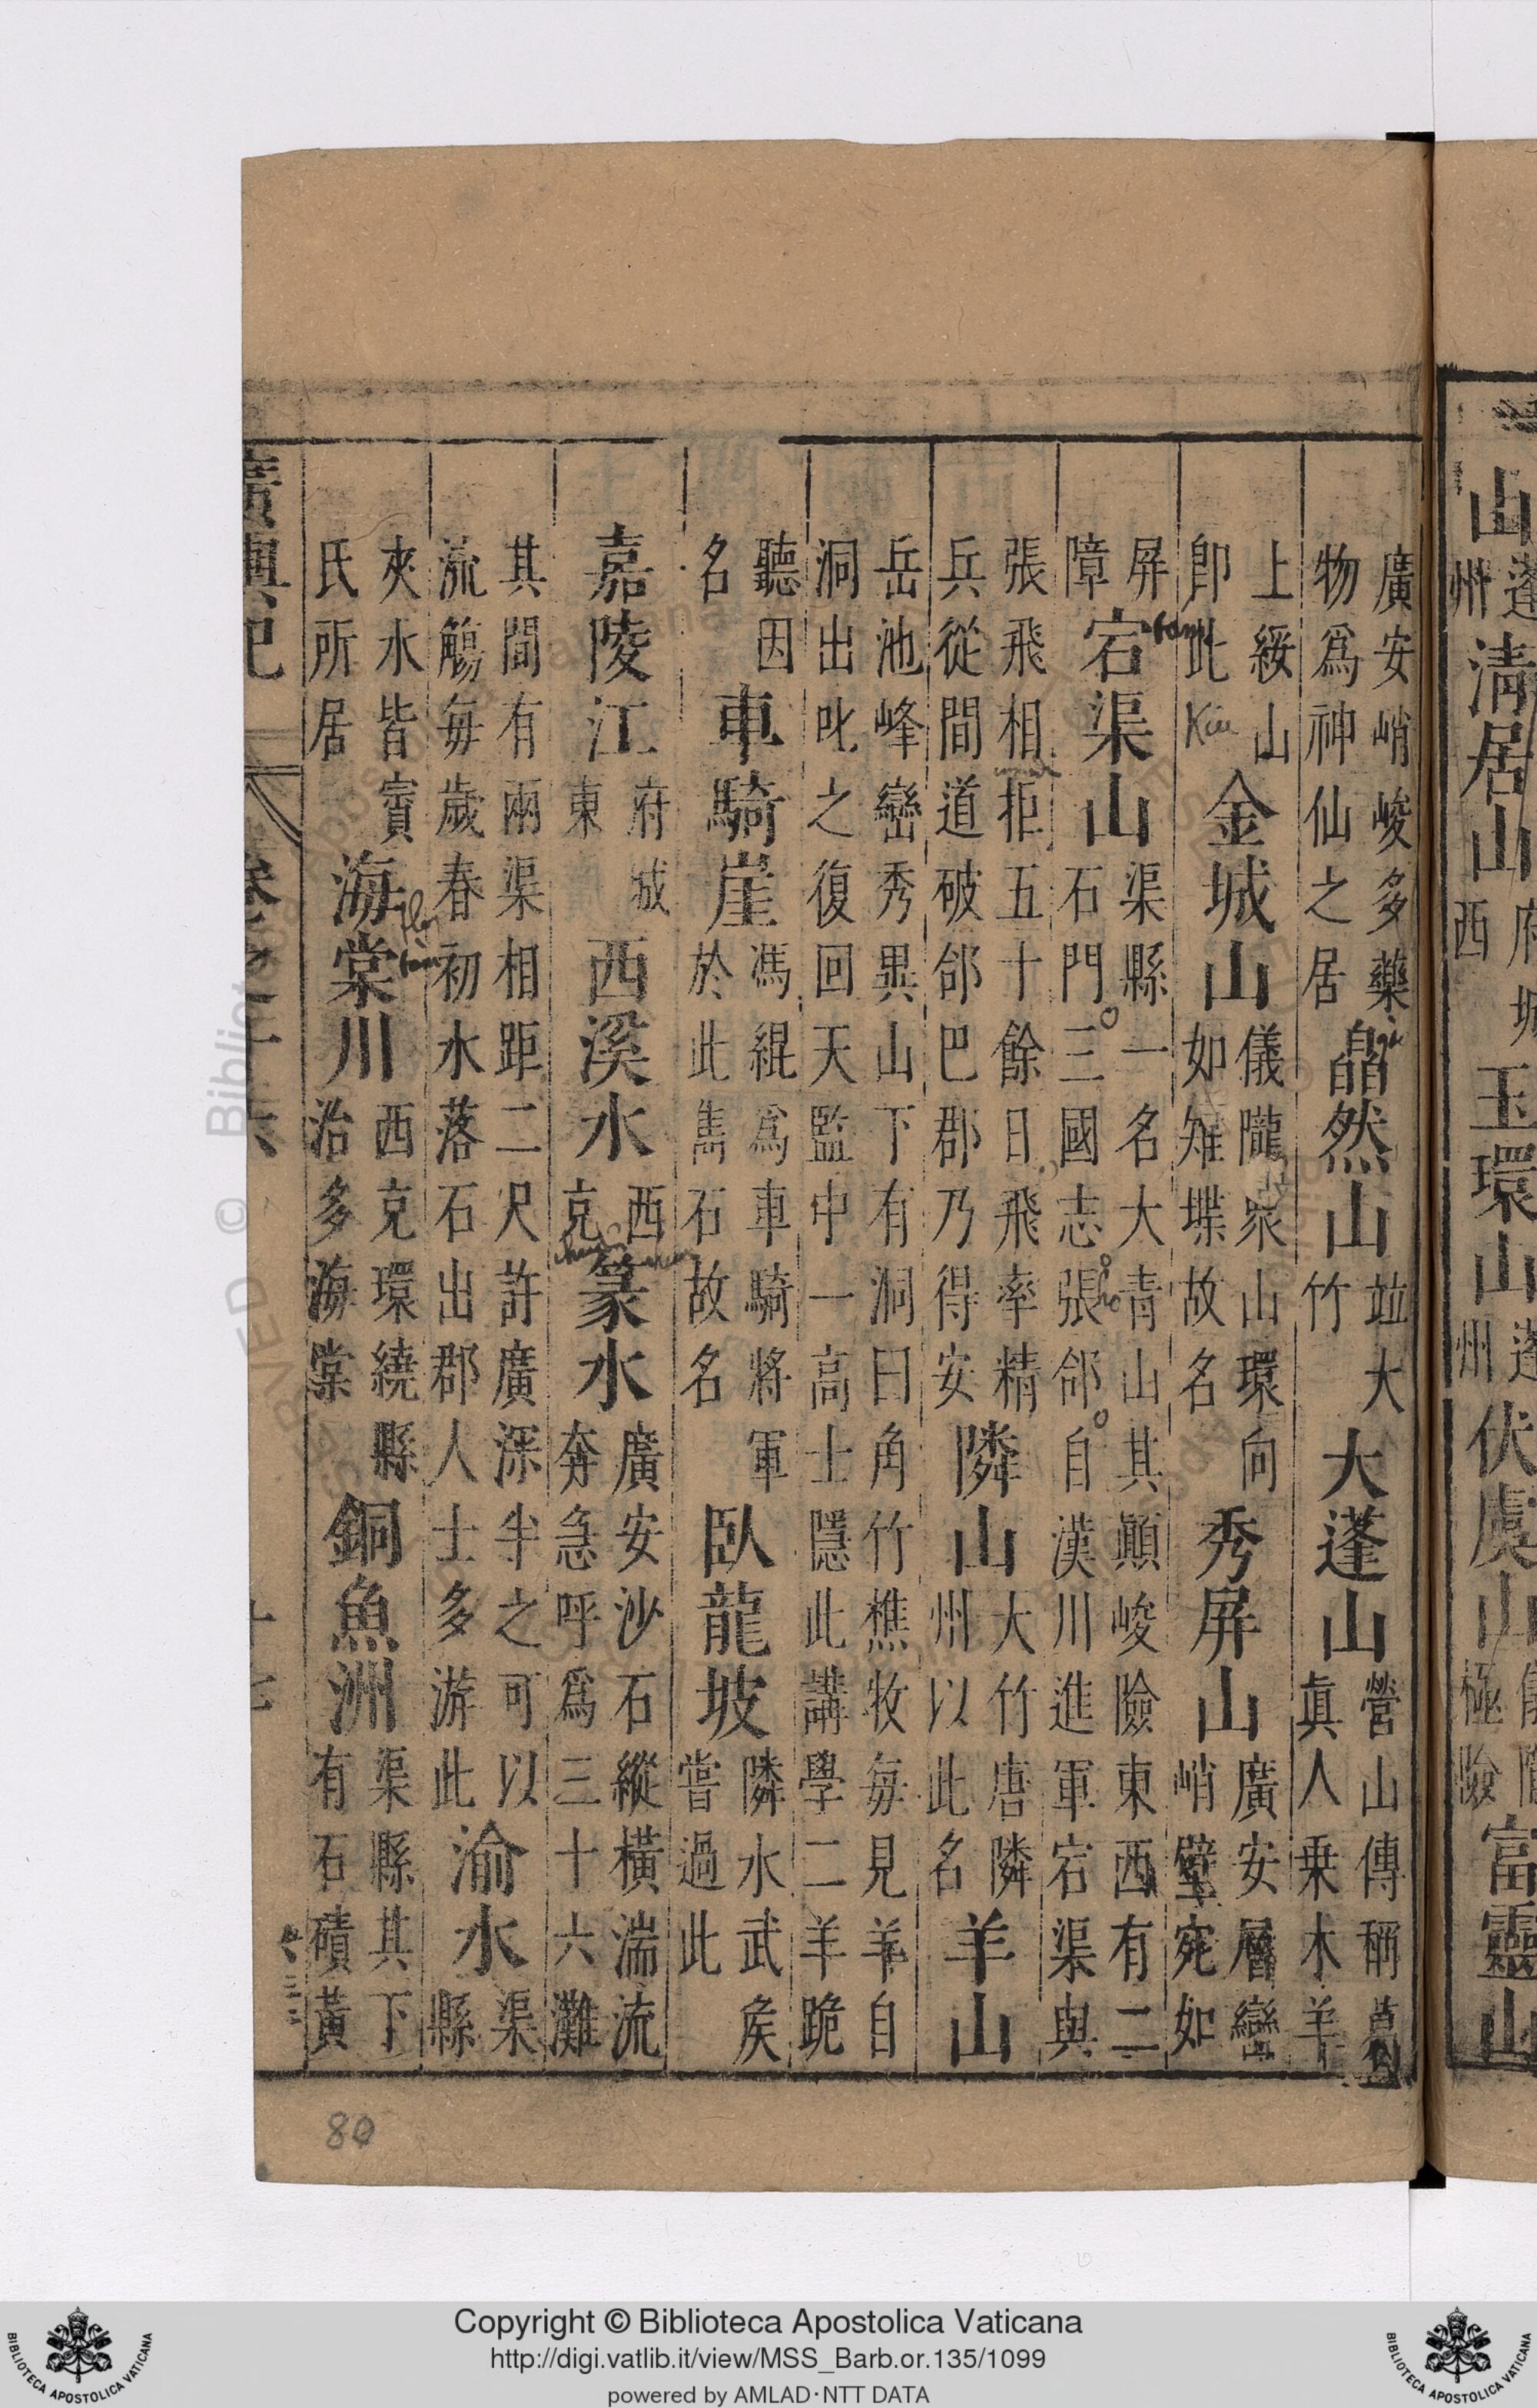 山蓬州清居山府城西玉環山蓬州伏虞山儀隴極險富靈山
廣安峭峻多藥物爲神仙之居皛然山竝大竹大蓬山營山傳稱葛真人乗木羊
上綏山即此金城山儀隴眾山環向如雉堞故名秀屏山廣安層巒峭壁宛如
屏障宕渠山渠縣一名大青山其顛峻險東西有二石門三國志張郃自漢川進軍宕渠與
張飛相拒五十餘日飛率精兵從間道破郃巴郡乃得安隣山大竹唐隣州以此名羊山
岳池峰巒秀異山下有洞曰角竹樵牧毎見羊自洞出叱之復回天監中一高士隱此講學二羊跪
聽因名車騎崖馮緄爲車騎將軍於此雋石故名臥龍坡隣水武矦嘗過此
嘉陵江府城東西溪水西克篆水廣安沙石縱橫湍流奔急呼爲三十六灘
其間有兩渠相距二尺許廣深半之可以流觴毎歲春初水落石出郡人士多游此渝水渠縣
夾水皆賨氏所居海棠川西克環繞縣治多海棠銅魚洲渠縣其下有石磧黃
廣輿記 卷之十六 十七
80
Copyright © Biblioteca Apostolica Vaticana
http://digi.vatlib.it/view/MSS_Barb.or.135/1099
powered by AMLAD·NTT DATA
BIBLIOTECA APOSTOLICA VATICANA
BIBLIOTECA APOSTOLICA VATICANA